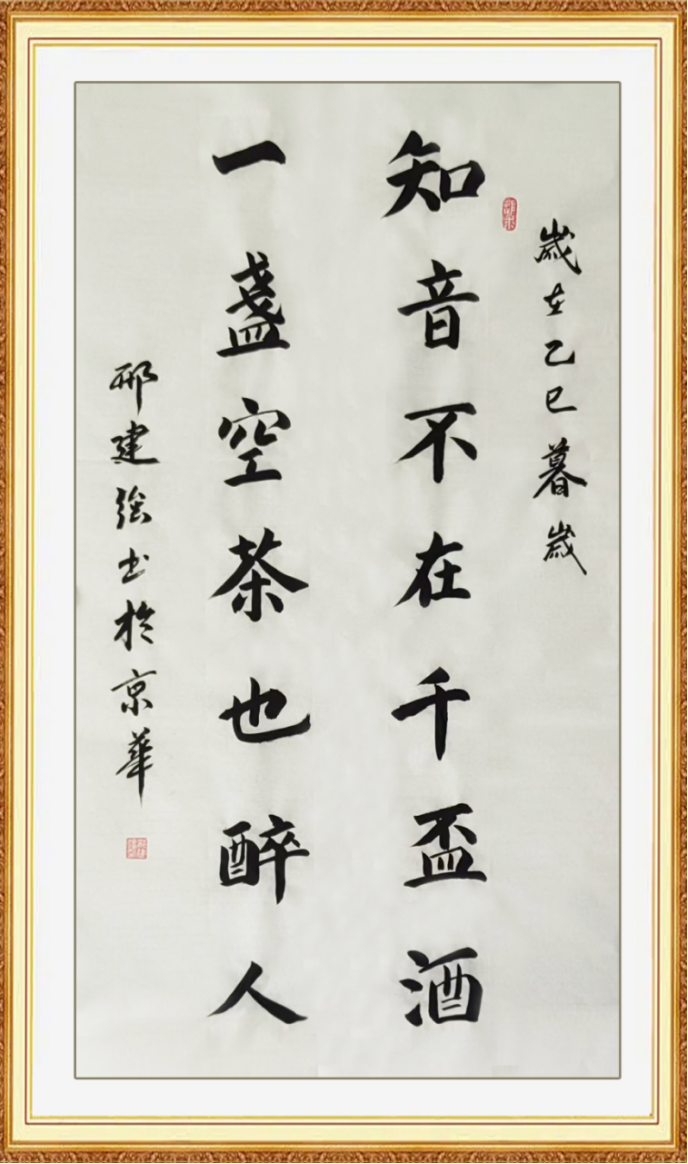 歲在乙巳暮歲
知音不在千盃酒
一盞空茶也醉人
邢建強书於京華